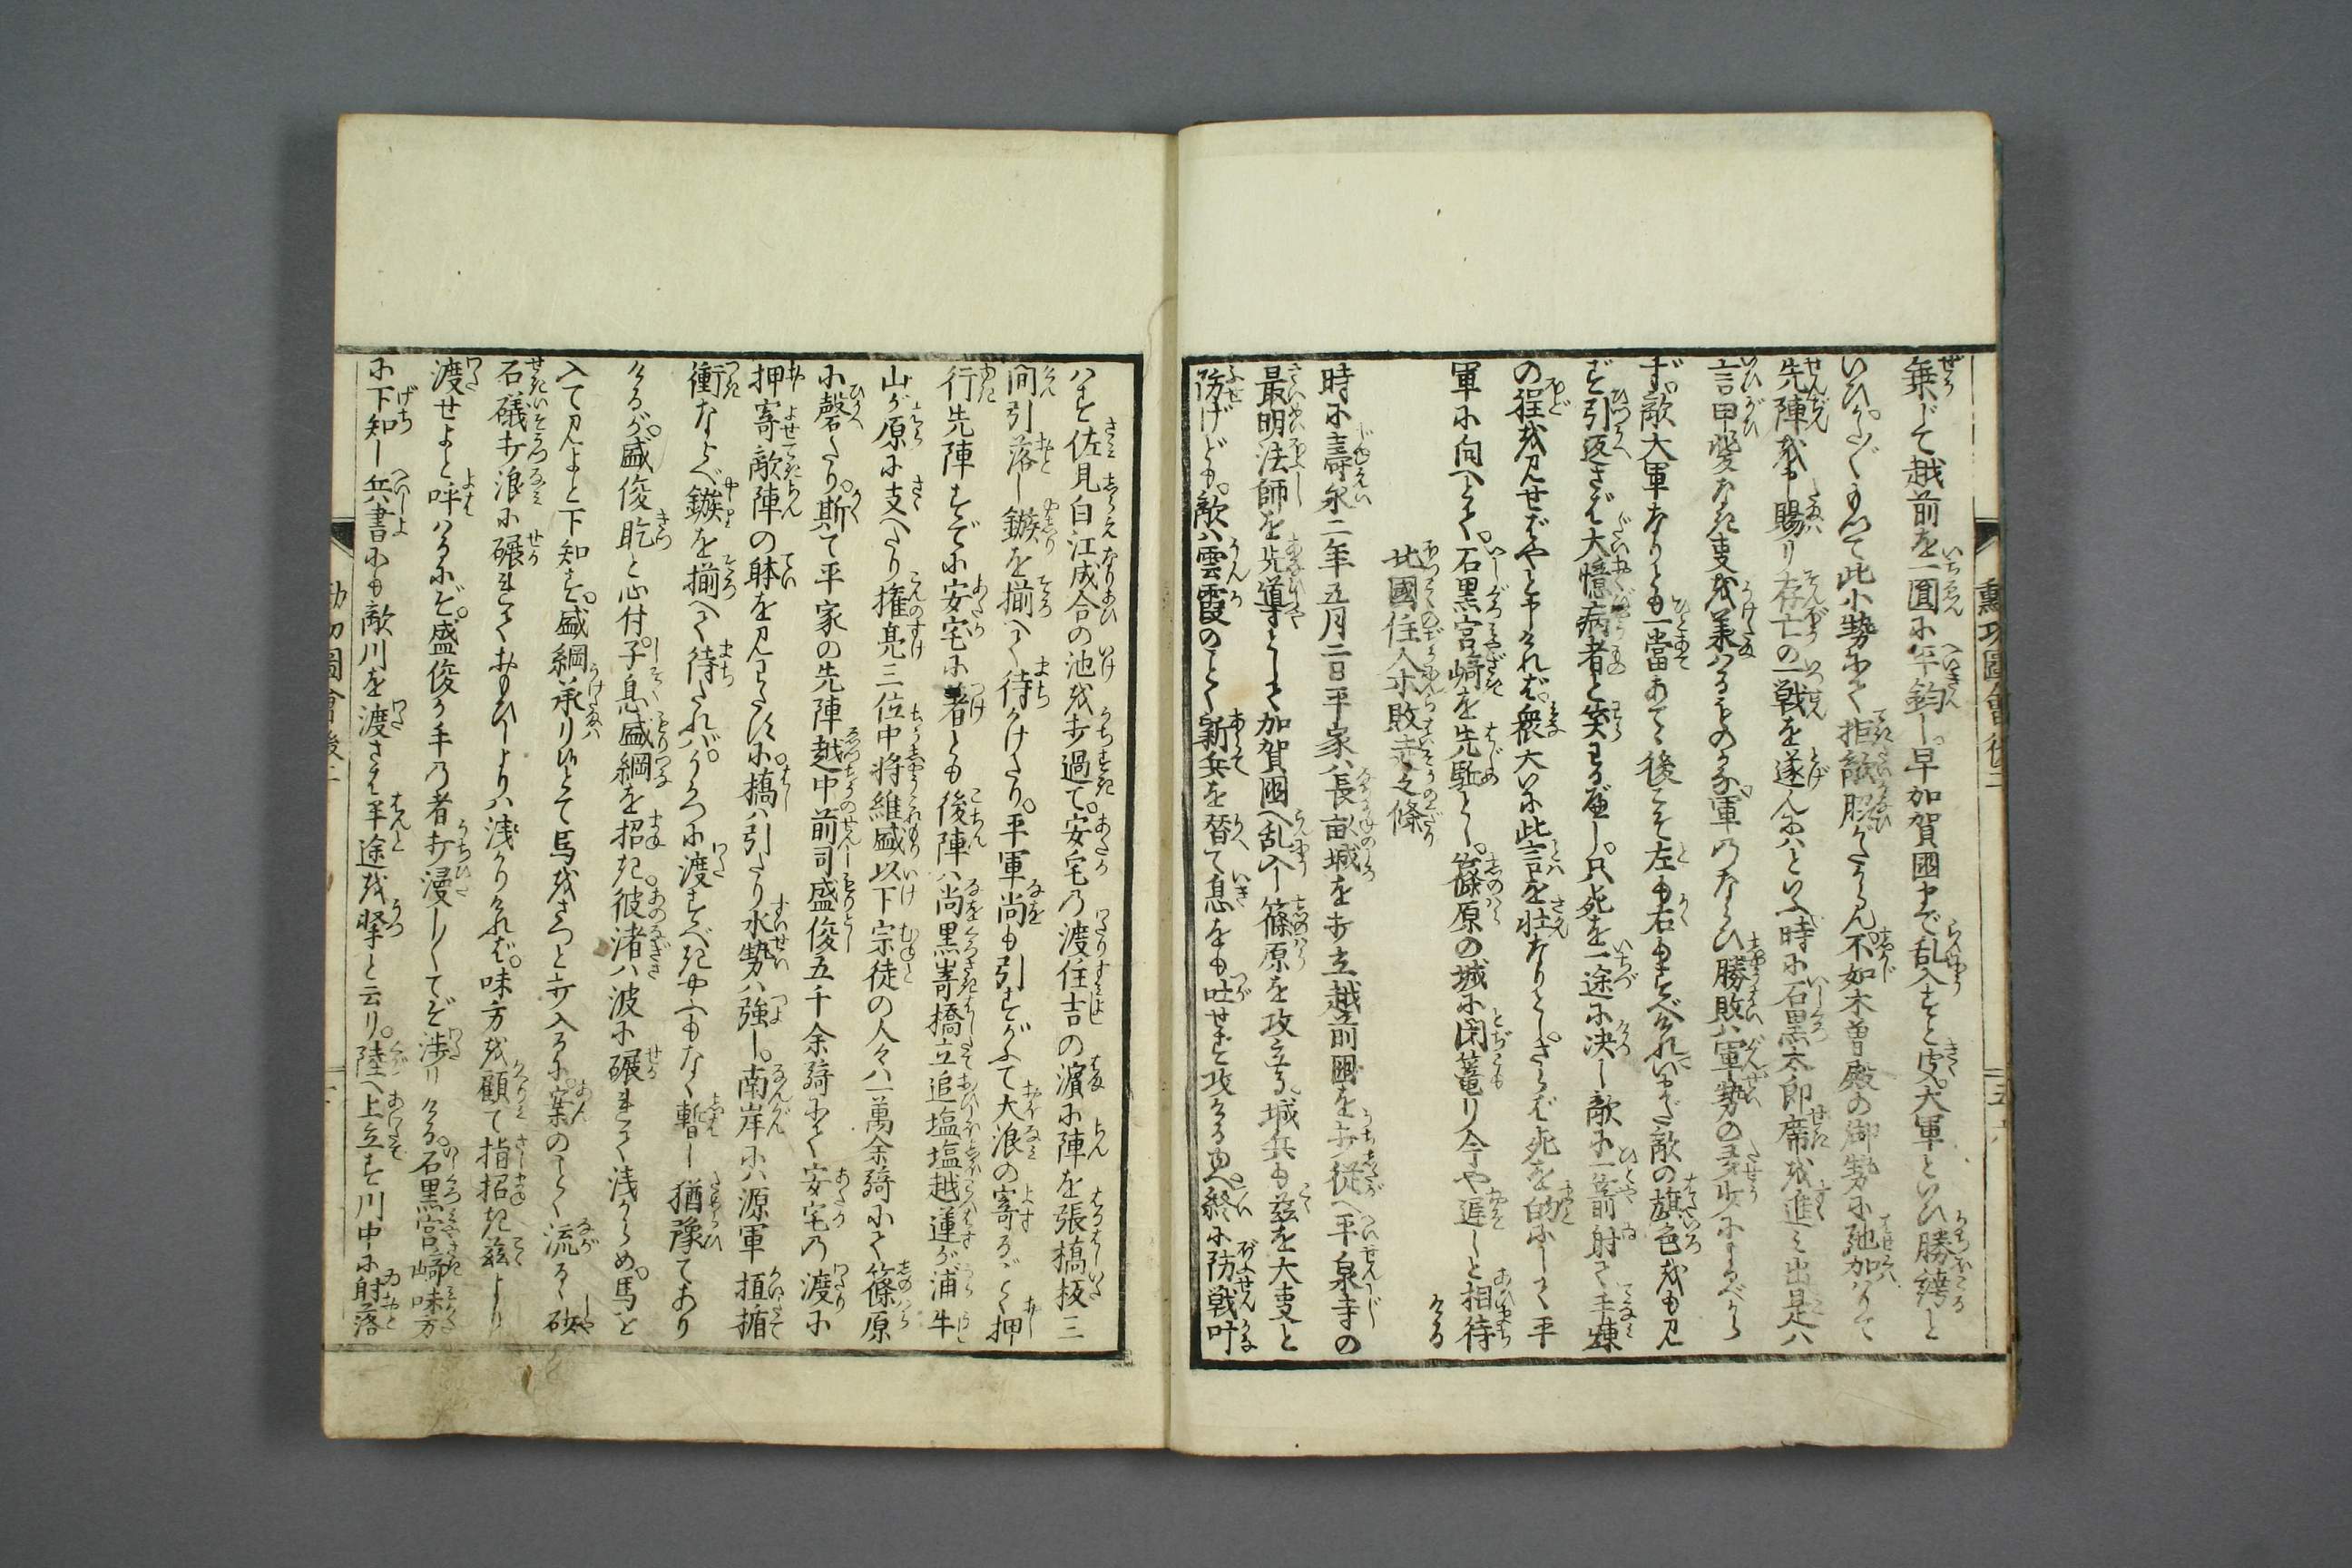 乗じて越前を一圓に平均し。早加賀國まで乱入すと聞。大軍といひ勝誇と
いひ。かた〴〵もつて此小勢にて拒敵叶がたからん。不如木曽殿の御勢に馳加りて
先陣を申賜り存亡の一戦を遂んにはといふ時に石黒太郎席を進み出是ハ
言甲斐なき事を承はるものかな。軍のならひ勝敗ハ軍勢の多少によるべから
ず。敵大軍なりとも一當あてゝ後こそ左も右もすべけれいまだ敵の旗色をも見
ずに引返さば大憶病者と笑わる應し。只死を一途に決し敵に一箭射て手煉
の程を見せばやと申けれバ。衆大いに此言を壮なりとし。さらバ死を的にして平
軍に向へとて。石黒宮﨑を先駈とし。篠原の城に閉篭り今や遅しと相待
ける
北國住人等敗走之條
時に壽永二年五月二日平家ハ長畝城を打立越前國を打従へ平泉寺の
最明法師を先導として加賀國へ乱入し篠原を攻立る。城兵も茲を大事と
防げども。敵ハ雲霞のごとく新兵を替て息をも吐せず攻けるゆへ。終に防戦叶
ハず佐見白江成合の池を打過て。安宅の渡住吉の濱に陣を張橋板三
間引落し鏃を揃へて待かけたり。平軍尚も引すがふて大浪の寄るごとく押
行先陣すでに安宅に著とも後陣ハ尚黒嵜橋立追塩塩越蓮が浦牛
山が原に支へたり権亮三位中将維盛以下宗徒の人々ハ一萬余騎にて篠原
に磬たり。斯て平家の先陣越中前司盛俊五千余騎にて安宅の渡に
押寄敵陣の躰を見わたすに。橋ハ引たり水勢ハ強し。南岸にハ源軍掻楯
衝ならべ鏃を揃へて待たれバ。たやすく渡すべきやうもなく暫し猶豫てあり
けるが。盛俊屹と心付。子息盛綱を招き。彼渚ハ波に碾れて浅からめ。馬を
入て見よと下知す。盛綱承り候とて馬をさつと打入るに。案のごとく流るゝ砂
石礒打浪に碾れておもひしよりハ浅かりけれバ。味方を顧て指招き茲より
渡せよと呼ハるにぞ。盛俊が手の者打漫〳〵てぞ渉りける。石黒宮﨑味方
に下知し兵書にも敵川を渡さば半途を撃と云り。陸へ上立ず川中に射落
勲功圖會後二